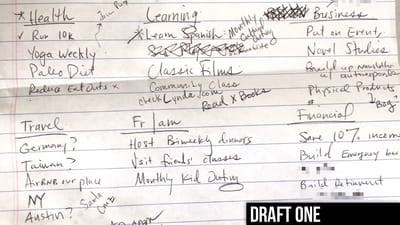 * Health
Join Run
✓ Run 10K
Yoga Weekly
Paleo Diet
Reduce Eat Outs x
Learning
* Learn Spanish
Monthly
website
Classic Films
Community Class
check Lynda.com
Read X Books
Business
Put on Event,
Novel Studies
Build up
w/
Physical Products
↳ Bag
Travel
Germany?
Taiwan?
AirBnB our place
NY
Santa Cruz
Austin?
Fr/am
Host Biweekly dinners
Visit friends' classes
Monthly Kid Outing
Financial
Save 10% income
Build Emergency
Build Retirement
DRAFT ONE